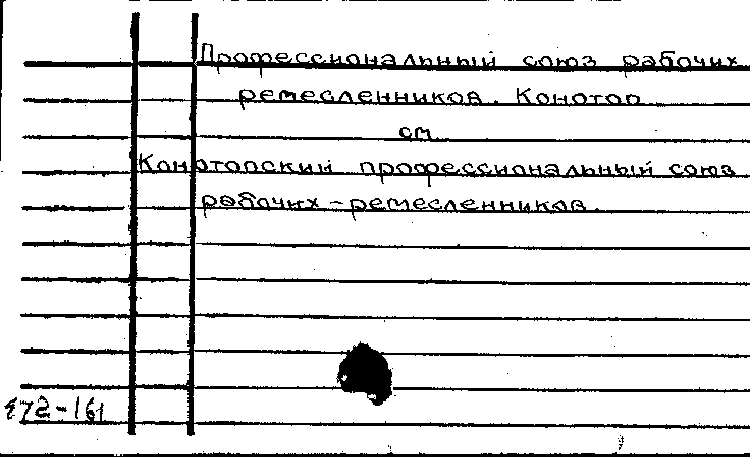 Профессиональный союз рабочих
ремесленников. Конотоп
см.
Конотопский профессиональный союз
рабочих-ремесленников.
472-161